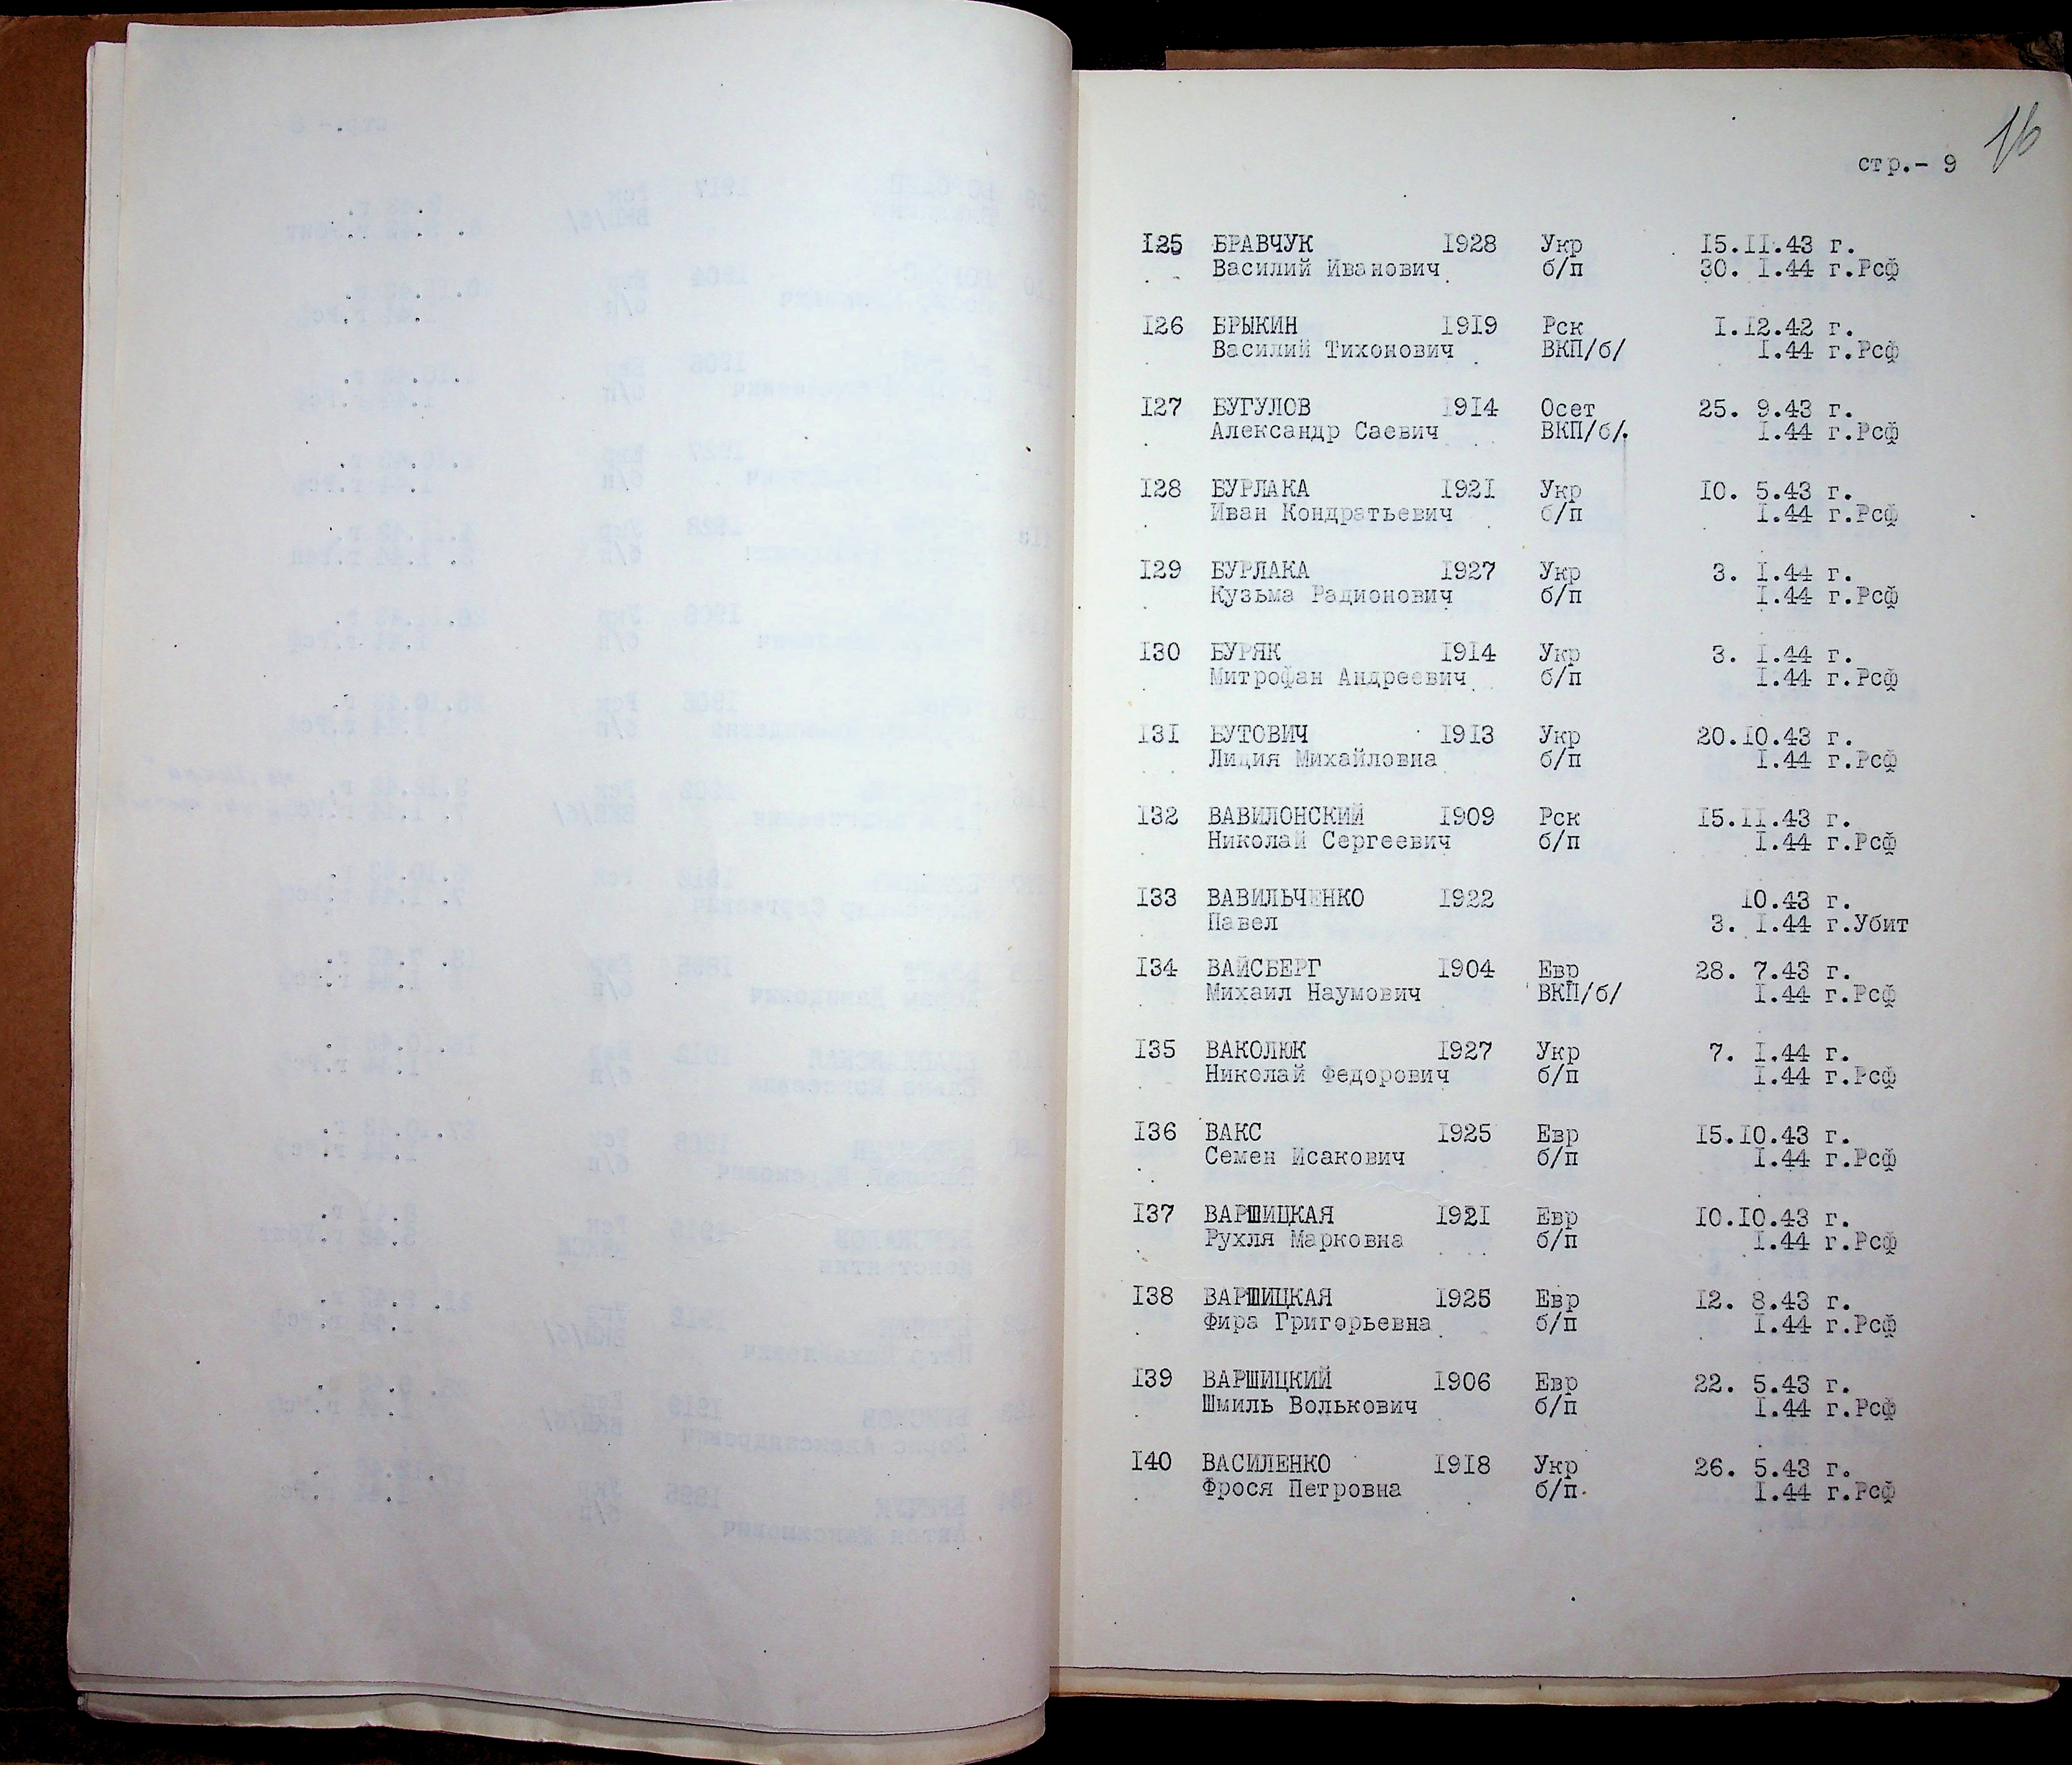 16
стр.- 9
I25 БРАВЧУК I928 Укр I5.II.43 г.
Василий Иванович б/п 30. I.44 г.Рсф
I26 БРЫКИН I9I9 Рск I.I2.42 г.
Василий Тихонович ВКП/б/ I.44 г.Рсф
I27 БУГУЛОВ I9I4 Осет 25. 9.43 г.
Александр Саевич ВКП/б/. I.44 г.Рсф
I28 БУРЛАКА I92I Укр I0. 5.43 г.
Иван Кондратьевич б/п I.44 г.Рсф
I29 БУРЛАКА I927 Укр 3. I.44 г.
Кузьма Радионович б/п I.44 г.Рсф
I30 БУРЯК I9I4 Укр 3. I.44 г.
Митрофан Андреевич б/п I.44 г.Рсф
I3I БУТОВИЧ I9I3 Укр 20.I0.43 г.
Лидия Михайловна б/п I.44 г.Рсф
I32 ВАВИЛОНСКИЙ I909 Рск I5.II.43 г.
Николай Сергеевич б/п I.44 г.Рсф
I33 ВАВИЛЬЧЕНКО I922 I0.43 г.
Павел 3. I.44 г.Убит
I34 ВАЙСБЕРГ I904 Евр 28. 7.43 г.
Михаил Наумович ВКП/б/ I.44 г.Рсф
I35 ВАКОЛЮК I927 Укр 7. I.44 г.
Николай Федорович б/п I.44 г.Рсф
I36 ВАКС I925 Евр I5.I0.43 г.
Семен Исакович б/п I.44 г.Рсф
I37 ВАРШИЦКАЯ I92I Евр I0.I0.43 г.
Рухля Марковна б/п I.44 г.Рсф
I38 ВАРШИЦКАЯ I925 Евр I2. 8.43 г.
Фира Григорьевна б/п I.44 г.Рсф
I39 ВАРШИЦКИЙ I906 Евр 22. 5.43 г.
Шмиль Волькович б/п I.44 г.Рсф
I40 ВАСИЛЕНКО I9I8 Укр 26. 5.43 г.
Фрося Петровна б/п. I.44 г.Рсф